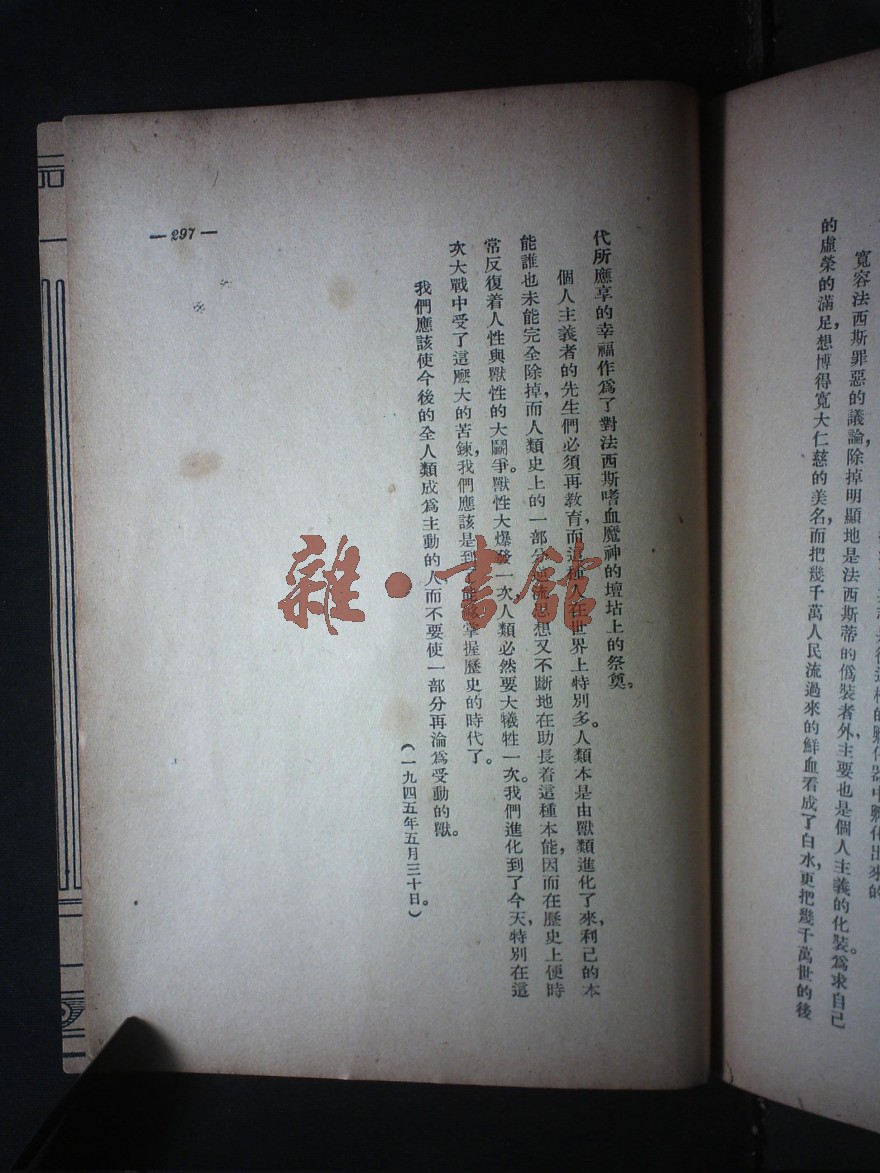 寬容法西斯罪惡的議論,除掉明顯地是法西斯蒂的僞裝者外,主要也是個人主義的化裝。爲求自己
的虛榮的滿足,想博得寬大仁慈的美名,而把幾千萬人民流過來的鮮血看成了白水,更把幾千萬世的後
代所應享的幸福作爲了對法西斯嗜血魔神的壇坫上的祭奠。
個人主義者的先生們必須再教育,而這種人在世界上特別多。人類本是由獸類進化了來,利己的本
能誰也未能完全除掉,而人類史上的一部分逆流思想又不斷地在助長着這種本能,因而在歷史上便時
常反復着人性與獸性的大鬭爭。獸性大爆發一次,人類必然要大犧牲一次。我們進化到了今天,特別在這
次大戰中受了這麽大的苦鍊,我們應該是到了能够掌握歷史的時代了。
我們應該使今後的全人類成爲主動的人而不要使一部分再淪爲受動的獸。
(一九四五年五月三十日。)
—297—
雜·書館